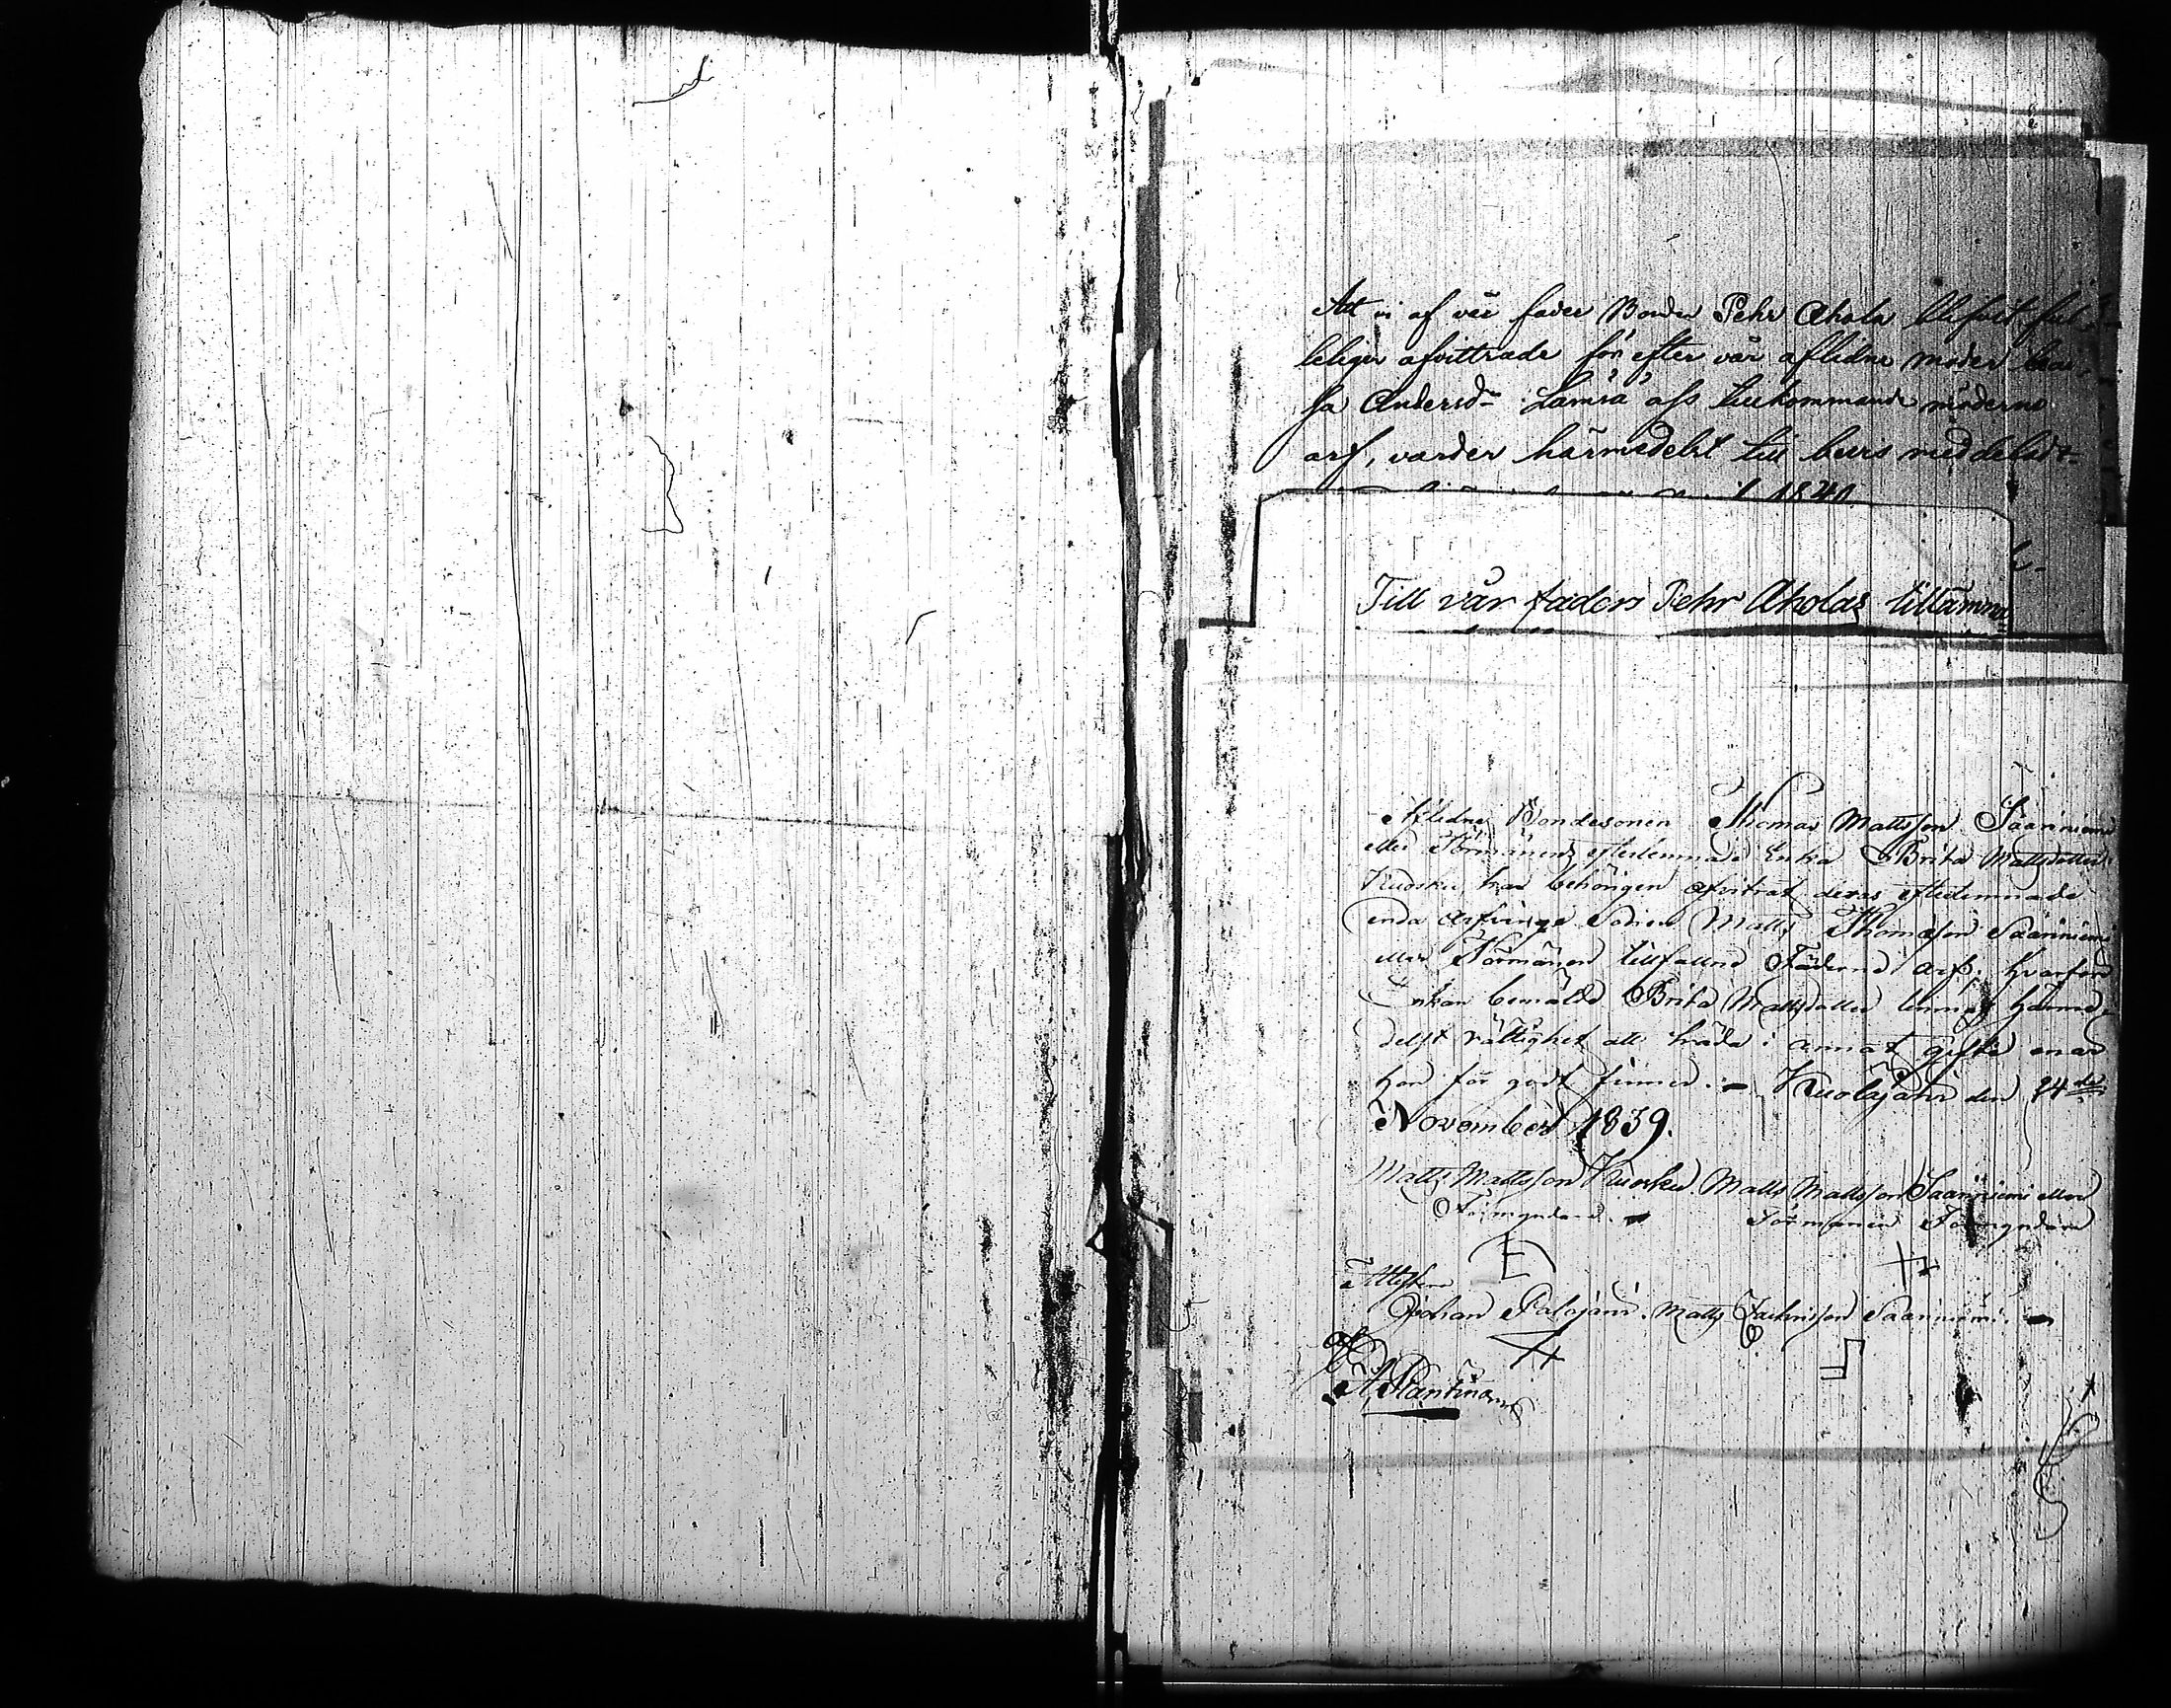 Att vi af vår fader Bonden Pehr Ahola blifvit ful-
leligen afvittrade för efter vår aflidne moder
sa Andersdr Lamsa oss tillkommande möderne
arf, varder härmedelst till bevis meddeladt
1840
Till vår faders Pehr Aholas tillämna
Aflidne Bondesonen Thomas Mattsson Saariniemi
eller Törmänens efterlemnade Enka Brita Mattsdotter
Kuosku har behörigen afvitrat deras efterlemnade
enda arfvinge Sonen Matts Thomasson Saariniemi
eller Törmänen tillfallne Fäderne arf; hvarföre
Enkan bemälde Brita Mattsdotter lemnas härme-
delst rättighet att träda i annat gifte enär
hon för godt finner. Kuolajärvi den 24de
November 1839.
Matts Mattsson Kuosku Matts Mattsson Saariniemi eller
Förmyndare. Törmänen Förmyndare
Johan Palojärvi. Matts Saariniemi.
A Plantina